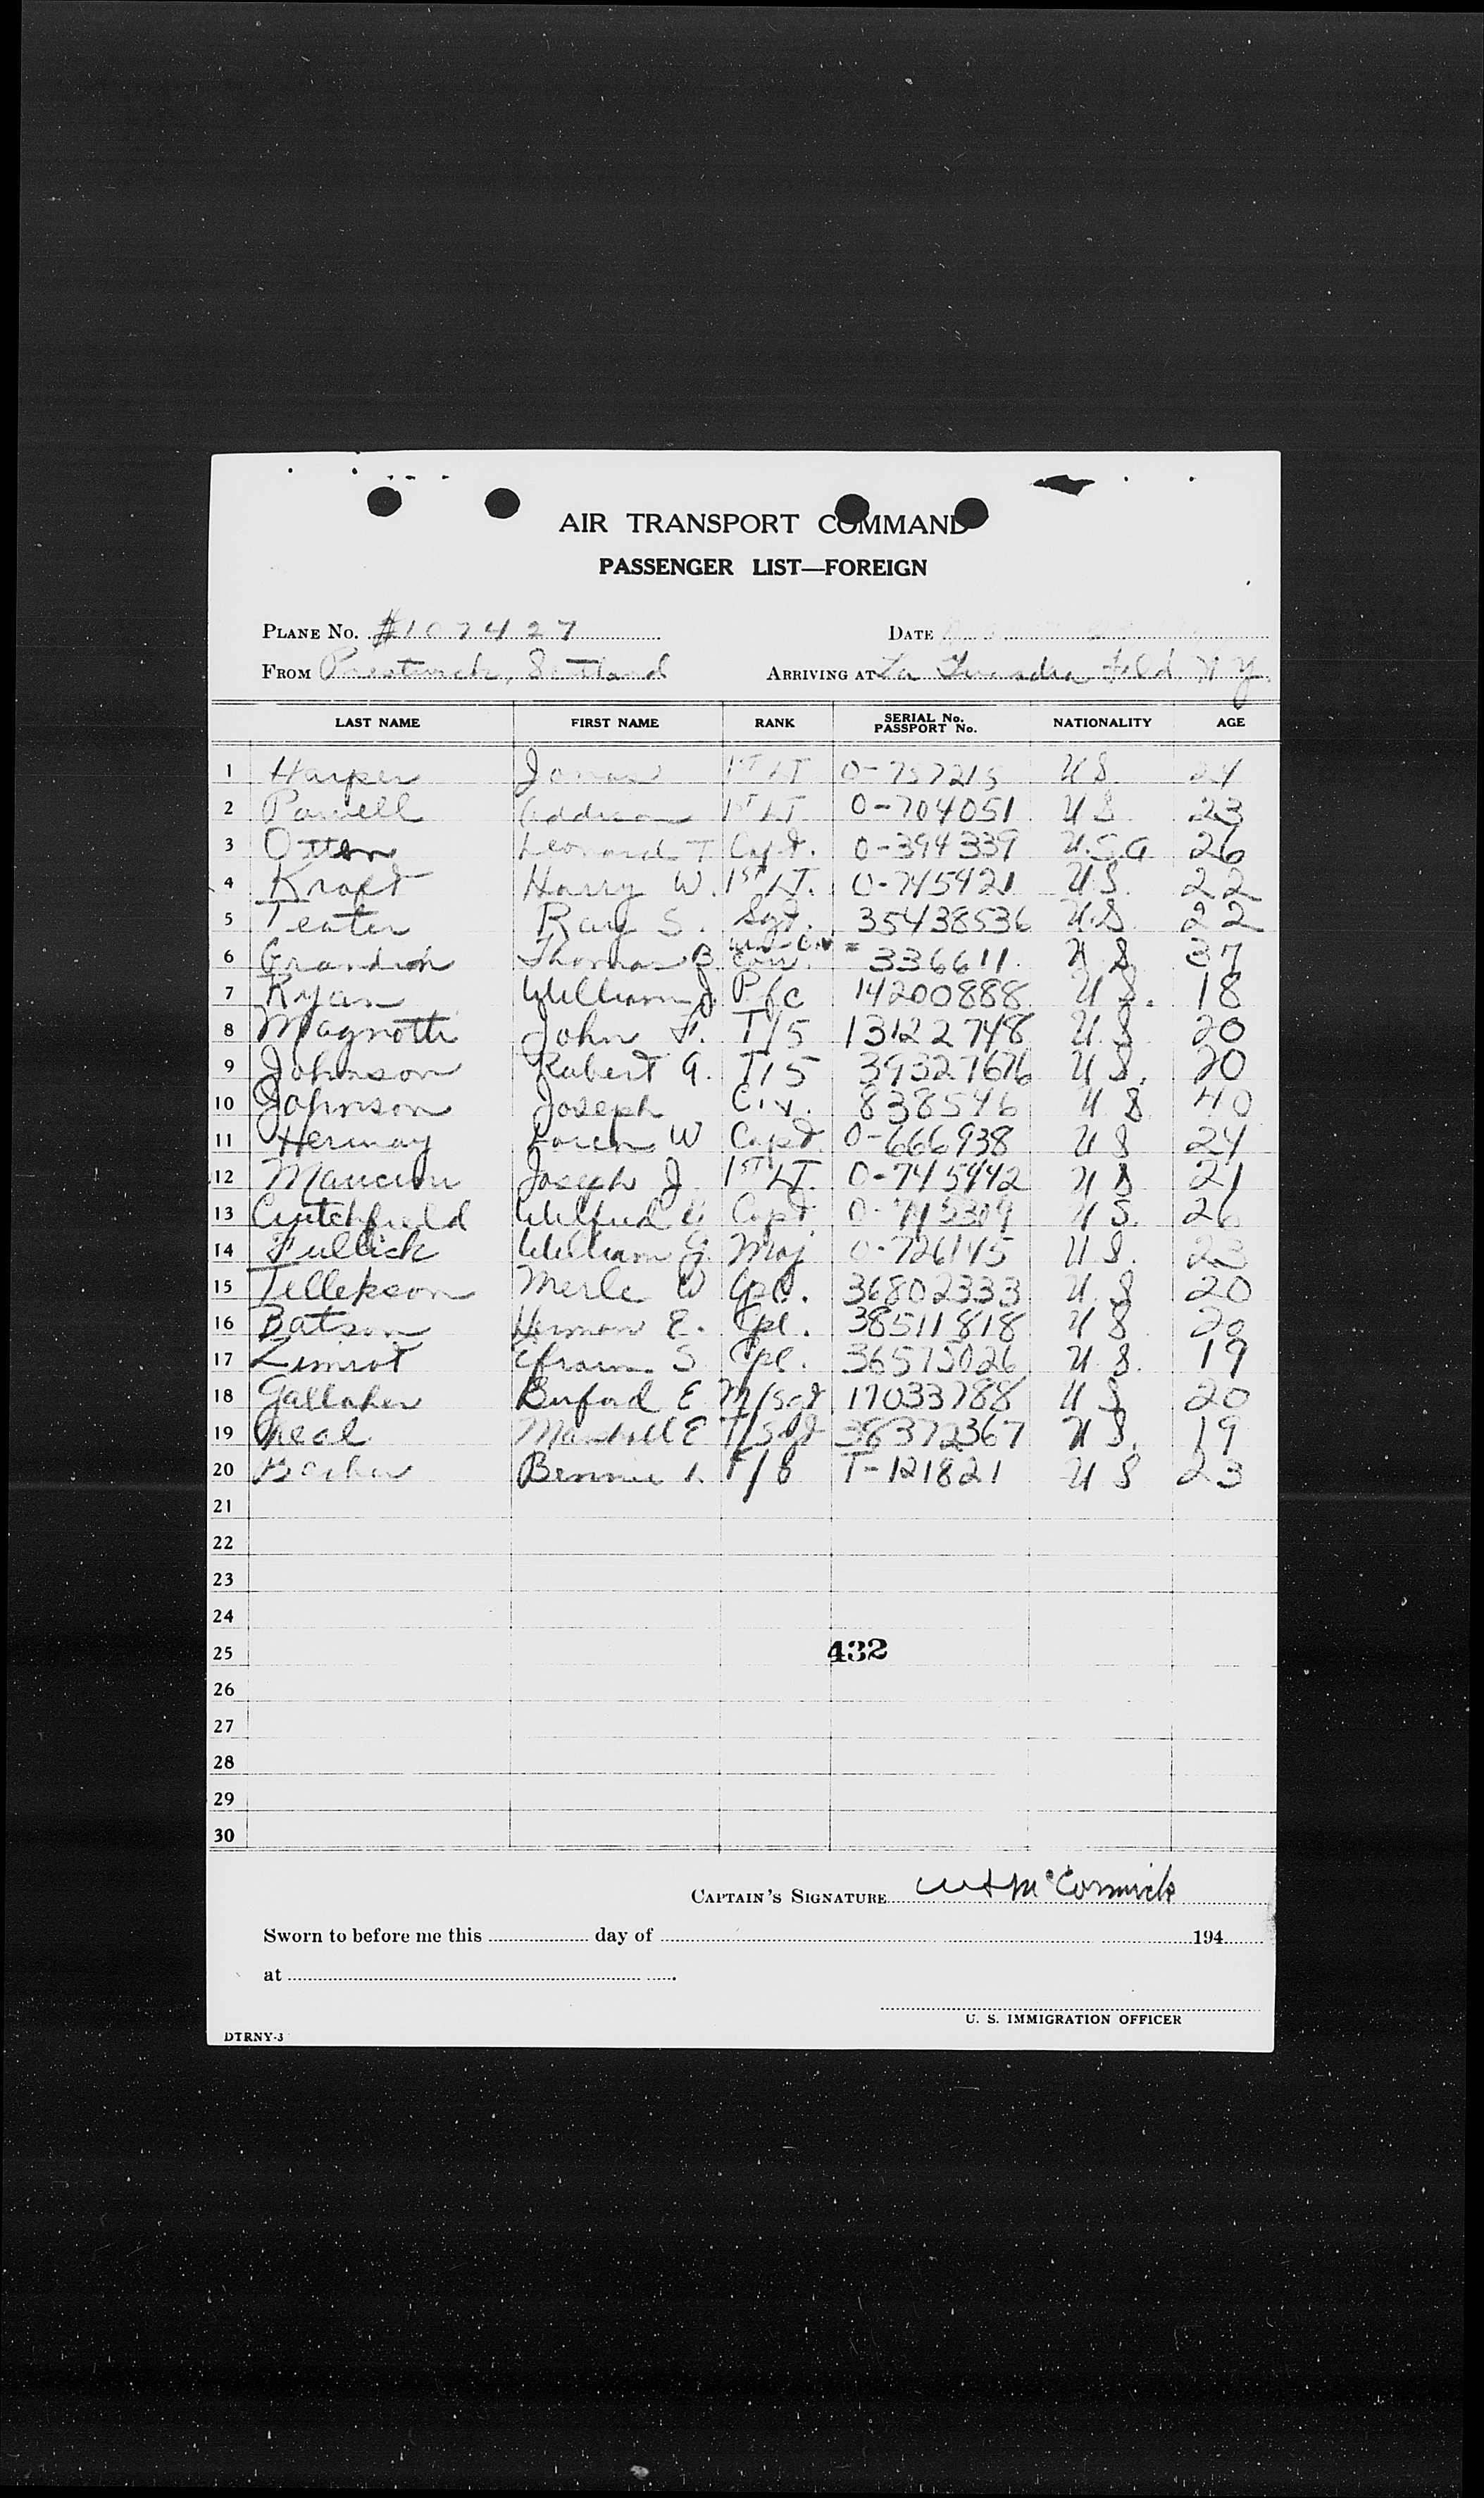 AIR TRANSPORT COMMAND
PASSENGER LIST—FOREIGN
PLANE No. #107427 DATE
FROM Prestwick, Scotland ARRIVING AT La Guardia Field N Y.
LAST NAME FIRST NAME RANK SERIAL No. PASSPORT No. NATIONALITY AGE
1 Harper 1ST LT 0-757215 U S. 24
2 Powell Addison 1ST LT 0-704051 U S. 23
3 Otten Leonard T Capt. 0-394339 U.S.A 26
4 Kraft Harry W. 1ST LT. 0-745421 U S. 22
5 Teater Ray S. Sgt. 35438536 U.S. 22
6 Thomas B 336611 U S 37
7 Ryan William J. Pfc 14200888 U S. 18
8 Magnotti John F. T/5 13122748 U. S 20
9 Johnson Robert G. T/5 39327676 U S. 20
10 Johnson Joseph Civ. 838546 U. S 40
11 Loren W Capt. 0-666938 U S 24
12 Mancini Joseph J. 1ST LT. 0-745442 U S 21
13 Crutchfield Wilfred Capt. U S. 26
14 Fullick William G. Maj 0-726145 U S. 23
15 Tellekson Merle W Cpl. 36802333 U. S 20
16 Batson Herman E. Cpl. 38511818 U S 20
17 Limrot Efraim S Cpl. 36575026 U. S. 19
18 Gallaher Buford E M/Sgt 17033788 U S 20
19 Neal E T/Sgt 38372367 U S. 19
20 Bennie F/O T-121821 U S 23
21
22
23
24
25 432
26
27
28
29
30
CAPTAIN'S SIGNATURE McCormick
Sworn to before me this day of 194
at
U. S. IMMIGRATION OFFICER
DTRNY-3